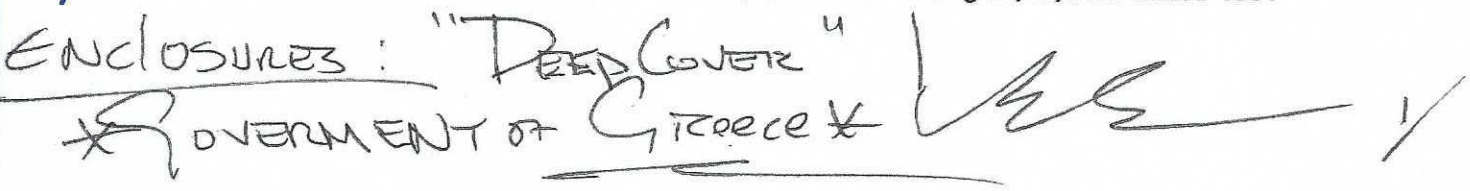 ENCLOSURES: "DEEP COVER"
*GOVERMENT OF Greece*